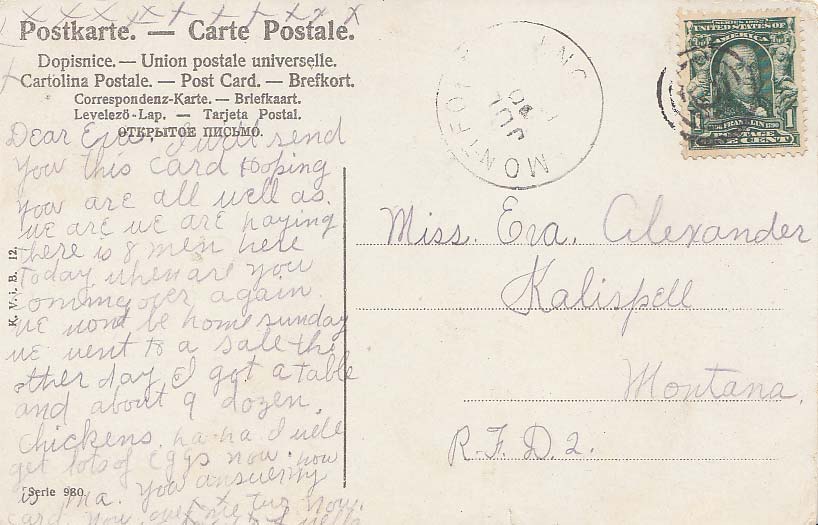 Postkarte. — Carte Postale.
Dopisnice. — Union postale universelle.
Cartolina Postale. — Post Card. — Brefkort.
Correspondenz-Karte. — Briefkaart.
Levelező-Lap. — Tarjeta Postal.
ОТКРЫТОЕ ПИСЬМО.
Dear Eva. I will send
you this card Hoping
you are all well as.
we are we are haying
there is 8 men here
today when are you
coming over again.
we wont be home sunday
we went to a sale the
other day I got a table
and about 9 dozen.
chickens. ha ha I will
get lots of eggs now. how
is ma. you answer my
card. now
K. V. i. B. 12.
Serie 980.
MONTFO
JUL
SERIES 1902
UNITED STATES OF
AMERICA
FRANKLIN
1 POSTAGE 1
ONE CENT
Miss. Eva. Alexander
Kalispell
Montana.
R.F.D. 2.